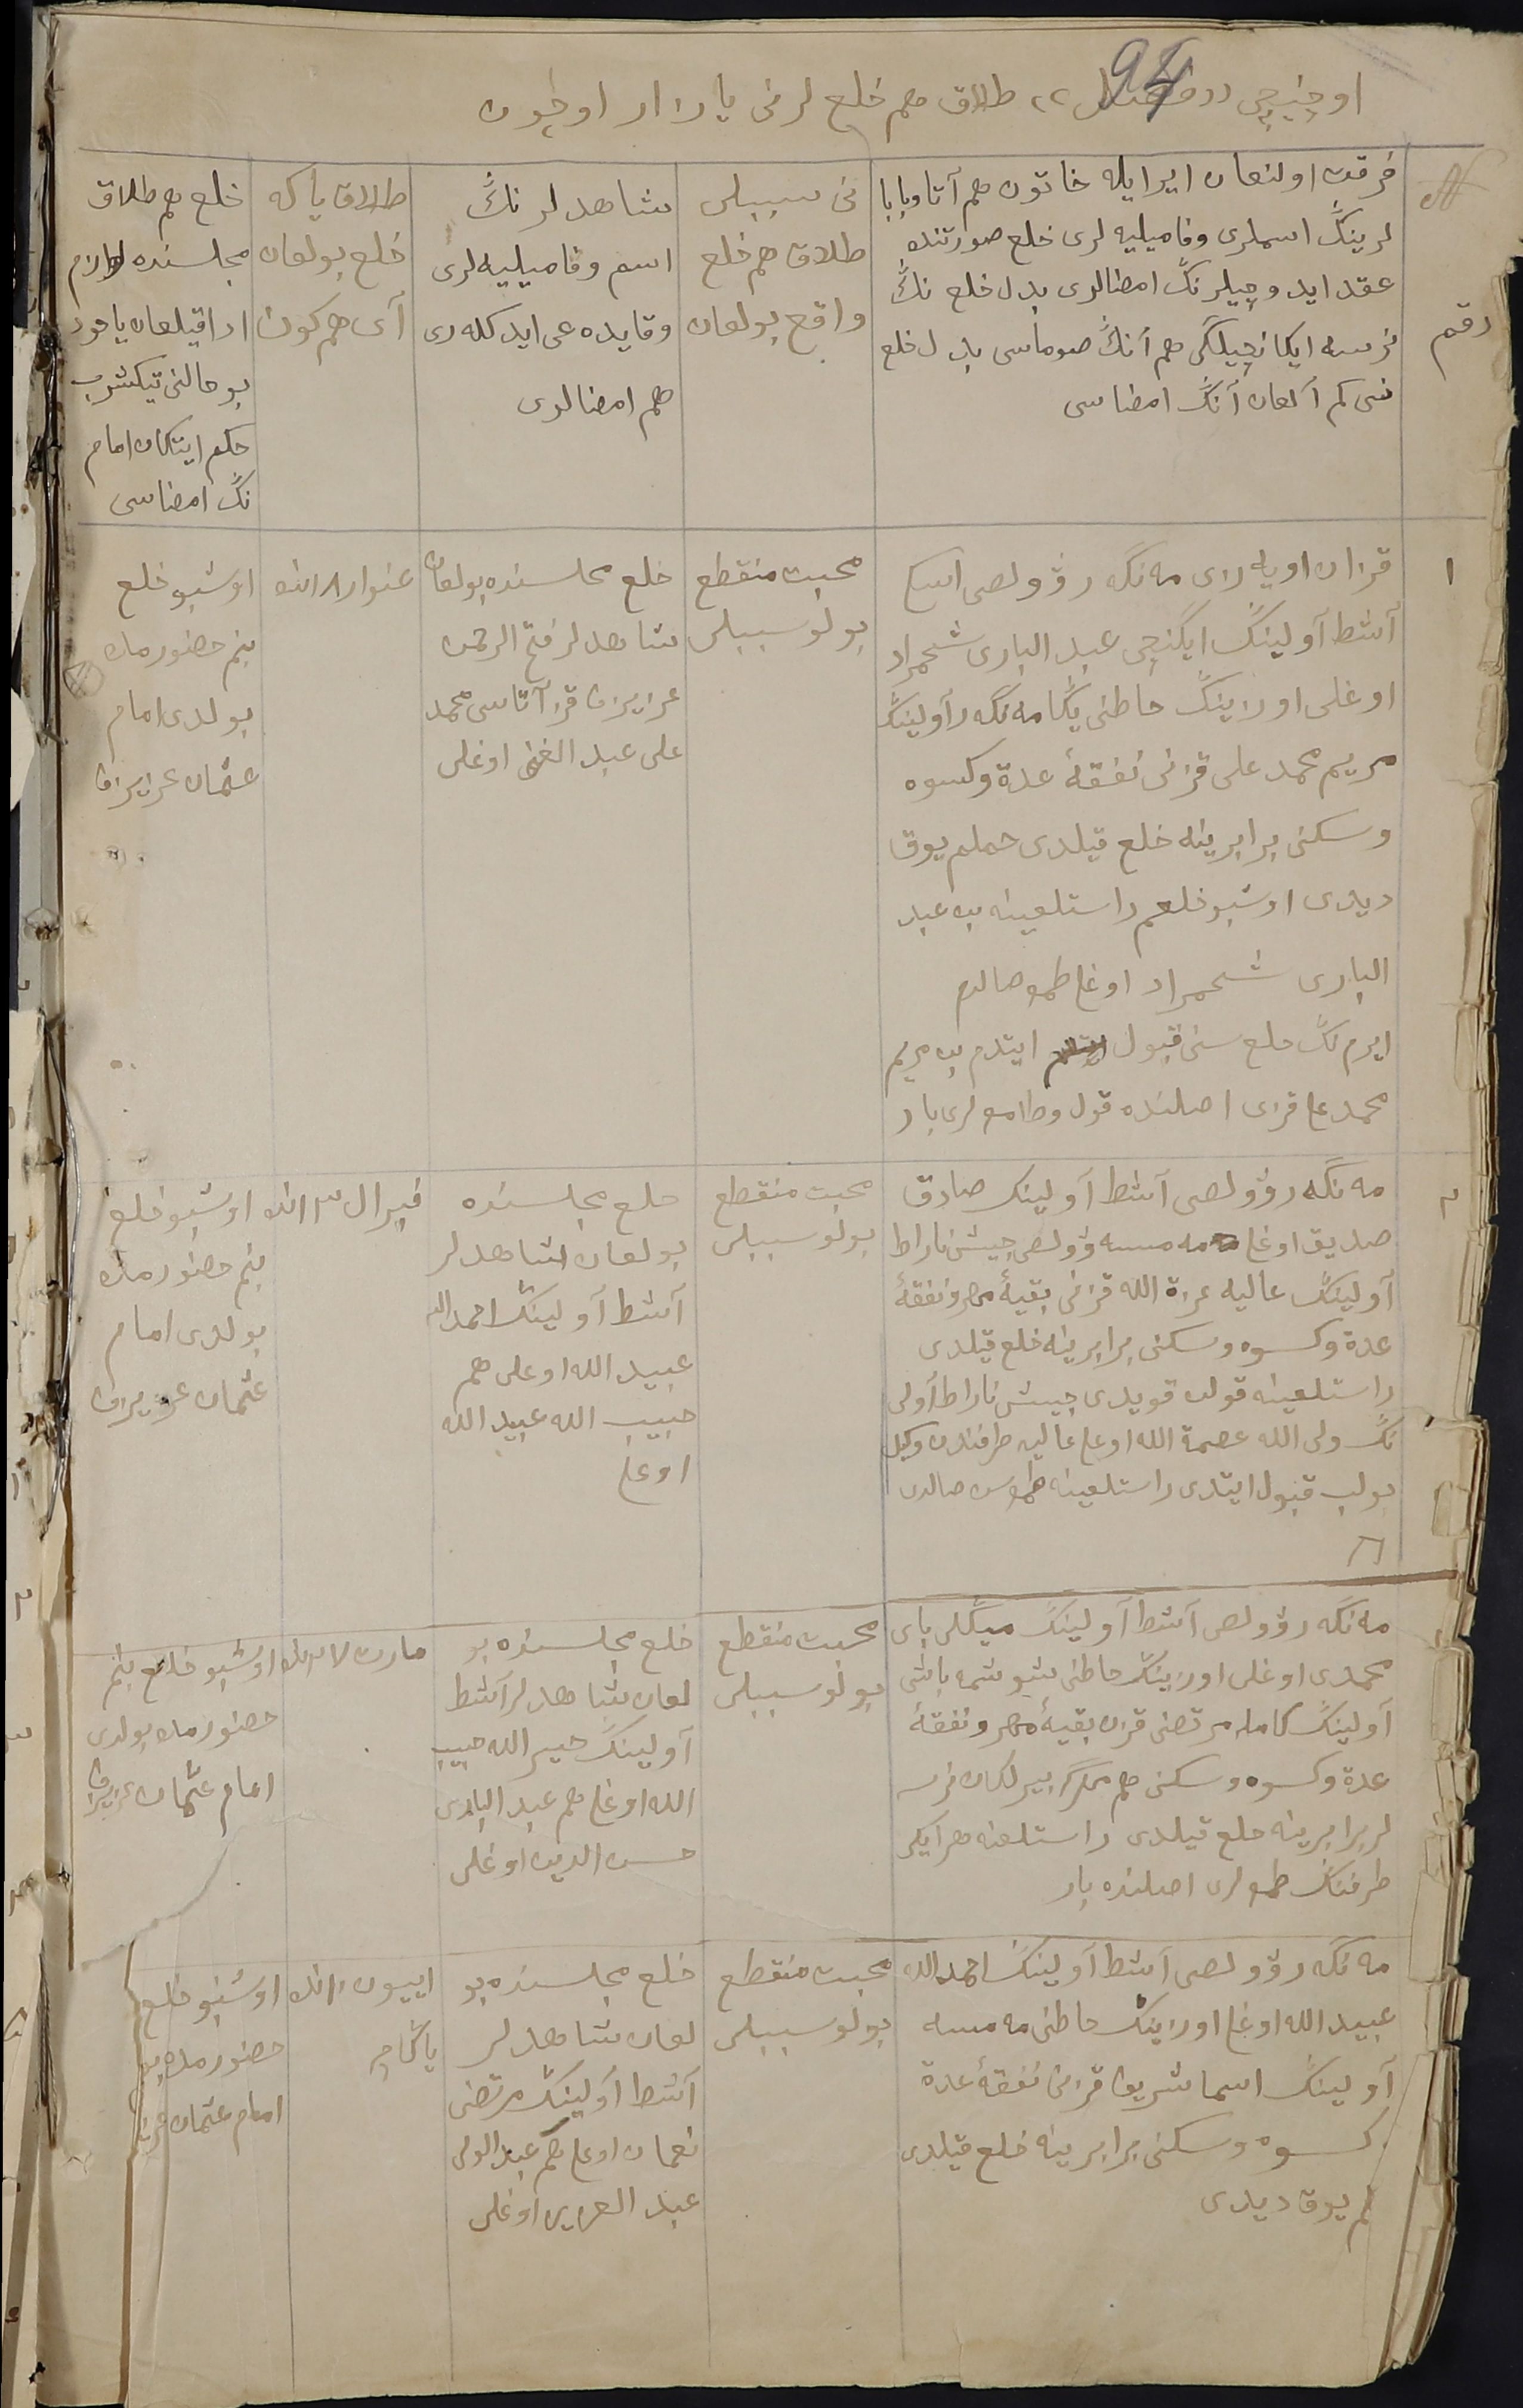 94
اوچنچی «فصل» طلاق هم خلع لرنی یازار اوچون
№
رقم
فرقت اولنغان ایر ایله خاتون هم آتا و بابا
لرینڭ اسملری و فامیلیه لری خلع صورتنده
عقد ایدوچیلرنڭ امضالری بدل خلع نڭ
نرسه ایکانچیلگی هم آنڭ صوماسی بدل خلع
نی کم آلغان آنڭ امضاسی
نی سببلی
طلاق هم خلع
واقع بولغان
شاهدلرنڭ
اسم و فامیلیه لری
و قایده عی ایدکله ری
هم امضالری
طلاق یا که
خلع بولغان
آی هم کون
خلع هم طلاق
مجلسنده
اوقیلغان یاخود
بو حالنی تیکشرب
حکم ایتکان امام
نڭ امضاسی
۱
قزان اویه زی مه نگه ر وولصی
آشط آولینڭ ایگنچی عبد الباری شحمراد
اوغلی اوزینڭ خاطنی یڭا مه نگه ر آولینڭ
مریم محمد علی قزنی نفقهٔ عدة و کسوه
و سکنی برابرینه خلع قیلدی حملم یوق
دیدی اوشبو خلعم راستلغینه عبد
الباری شحمراد اوغلی طمغا صالدم
ایرم نڭ خلع سنی قبول ایتدم مریم
محمد علی قزی اصلنده قول و طامغه لری بار
محبت منقطع
بولو سببلی
خلع مجلسنده بولغان
شاهدلر فتح الرحمن
عزیزف قز آتاسی محمد
علی عبد الغنی اوغلی
غنوار ۸ انده
اوشبو خلع
بنم حضورمده
بولدی امام
عثمان عزیزف
۲
مه نگه ر وولصی آشط آولینڭ صادق
صدیق اوغلی مه مسه وولصی چیشی ناراط
آولینڭ عالیه عزة الله قزنی بقیهٔ مهر و نفقهٔ
عدة و کسوه و سکنی برابرینه خلع قیلدی
راستلغینه قولن قویدی چیشی ناراط آولی
نڭ ولی الله عصمة الله اوغلی عالیه طرفندن وکیل
بولب قبول ایتدی راستلغینه طمغاسن صالدی
محبت منقطع
بولو سببلی
خلع مجلسنده
بولغان شاهدلر
آشط آولینڭ احمد الله
عبید الله اوغلی هم
حبیب الله عبید الله
اوغلی
فیرال ۳ انده
اوشبو خلع
بنم حضورمده
بولدی امام
عثمان عزیزف
مه نگه ر وولصی آشط آولینڭ میڭلی بای
محمدی اوغلی اوزینڭ خاطنی شوشمه باشی
آولینڭ کامله مرتضی قزن بقیهٔ مهر و نفقهٔ
عدة و کسوه و سکنی هم بیرلکان نرسه
لر برابرینه خلع قیلدی راستلغنه هر ایکی
طرفنڭ طمغالری اصلنده بار
محبت منقطع
بولو سببلی
خلع مجلسنده بو
لغان شاهدلر آشط
آولینڭ خیر الله حبیب
الله اوغلی هم عبد الباری
حسن الدین اوغلی
مارت
اوشبو خلع بنم
حضورمده بولدی
امام عثمان عزیزف
مه نگه ر وولصی آشط آولینڭ احمد الله
عبید الله اوغلی اوزینڭ خاطنی مه مسه
آولینڭ اسما شریف قزنی نفقهٔ عدة
کسوه و سکنی برابرینه خلع قیلدی
یوق دیدی
محبت منقطع
بولو سببلی
خلع مجلسنده بو
لغان شاهدلر
آشط آولینڭ مرتضی
نعمان اوغلی هم عبد الولی
عبد العزیز اوغلی
اییون
اوشبو خلع
حضورمده بو
امام عثمان